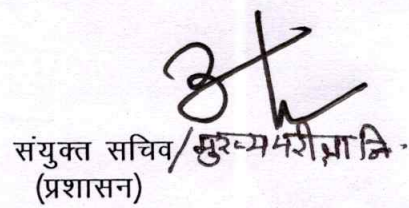 संयुक्त सचिव/मुख्य परीक्षा नि.
(प्रशासन)